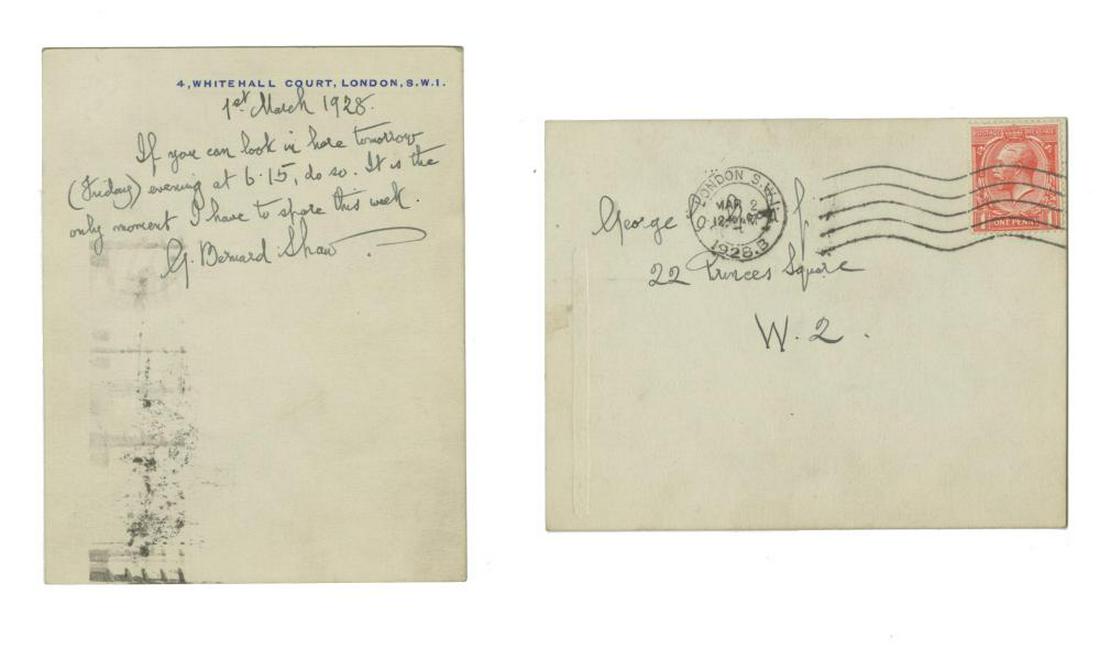 4, WHITEHALL COURT, LONDON, S.W.1.
1st March 1928.
If you can look in here tomorrow
(Friday) evening at 6.15, do so. It is the
only moment I have to spare this week.
G. Bernard Shaw
LONDON S.W.1.
MAR 2
1928.B
POSTAGE REVENUE
ONE PENNY
George
22 Princes Square
W.2.